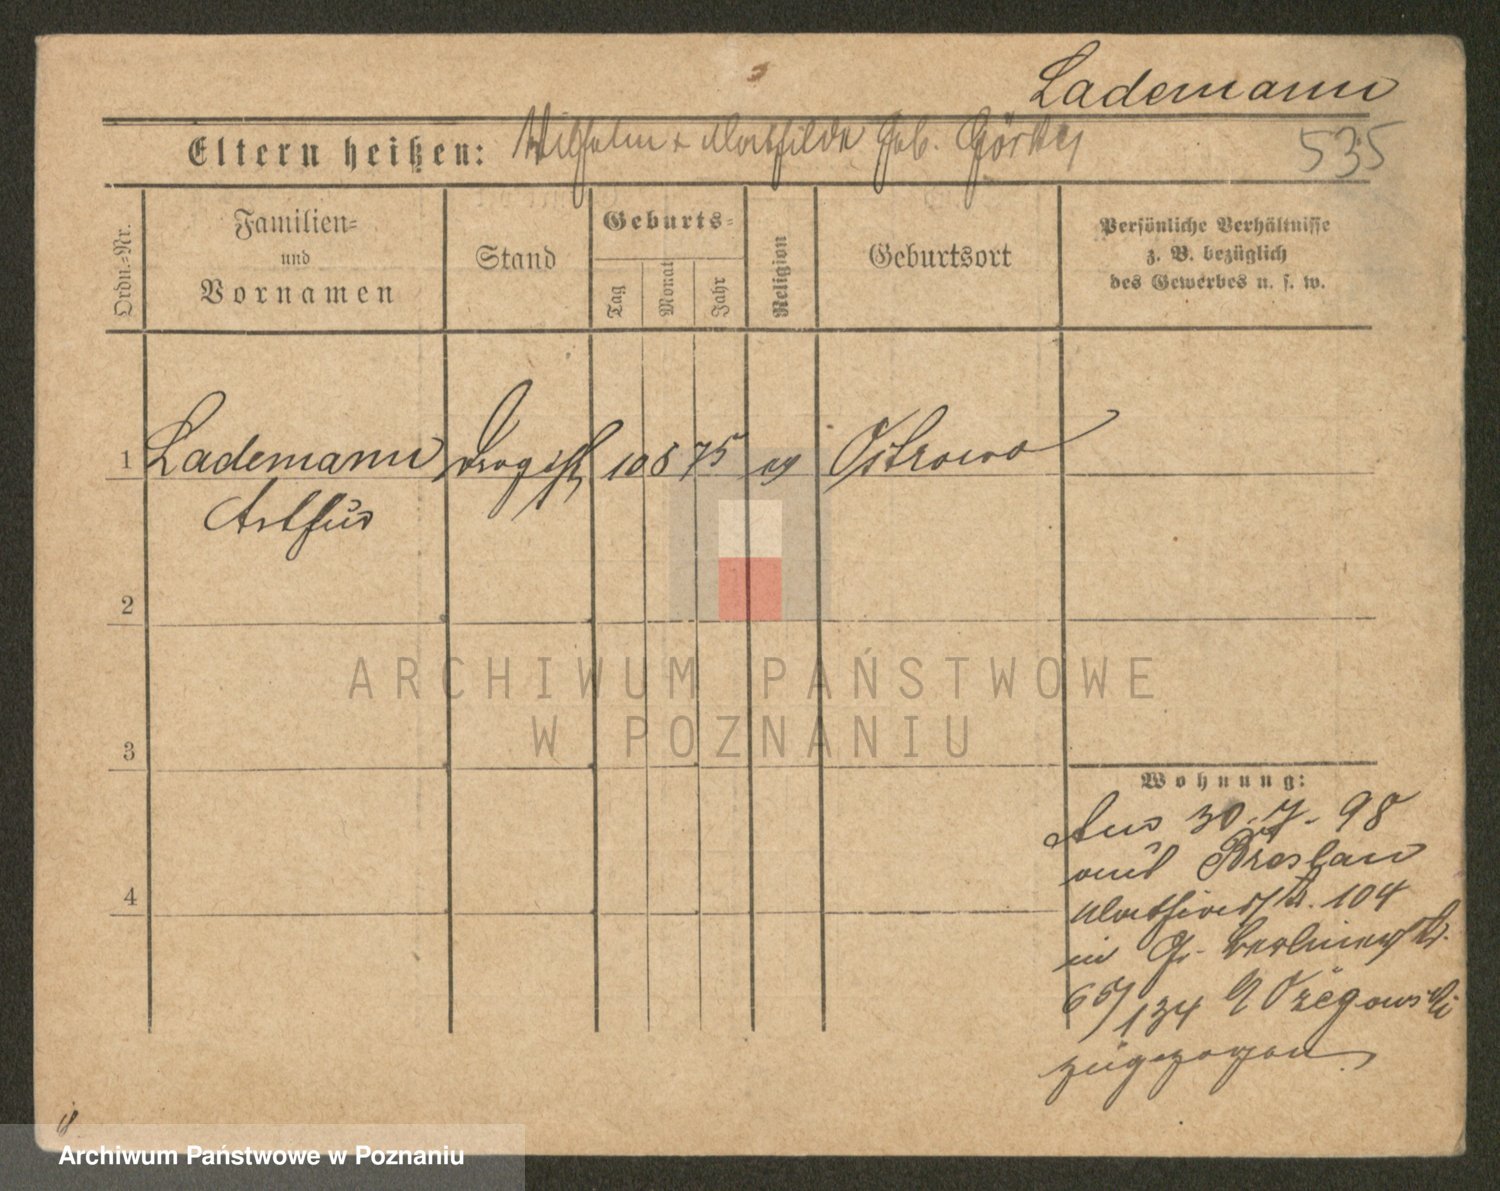 Lademann
Eltern heißen: Wilhelm + Mathilde geb.
535
Ordn.-Nr.
Familien-
und
Vornamen
Stand
Geburts-
Tag
Monat
Jahr
Religion
Geburtsort
Persönliche Verhältnisse
z. B. bezüglich
des Gewerbes u. s. w.
1 Lademann Drogist 10 8 75 ev Ostrowo
Arthur
2
3
4
ARCHIWUM PAŃSTWOWE
W POZNANIU
Wohnung:
Am 30.7.98
aus Breslau
104
in Gr. Berlinerstr.
65/134
zugezogen
Archiwum Państwowe w Poznaniu